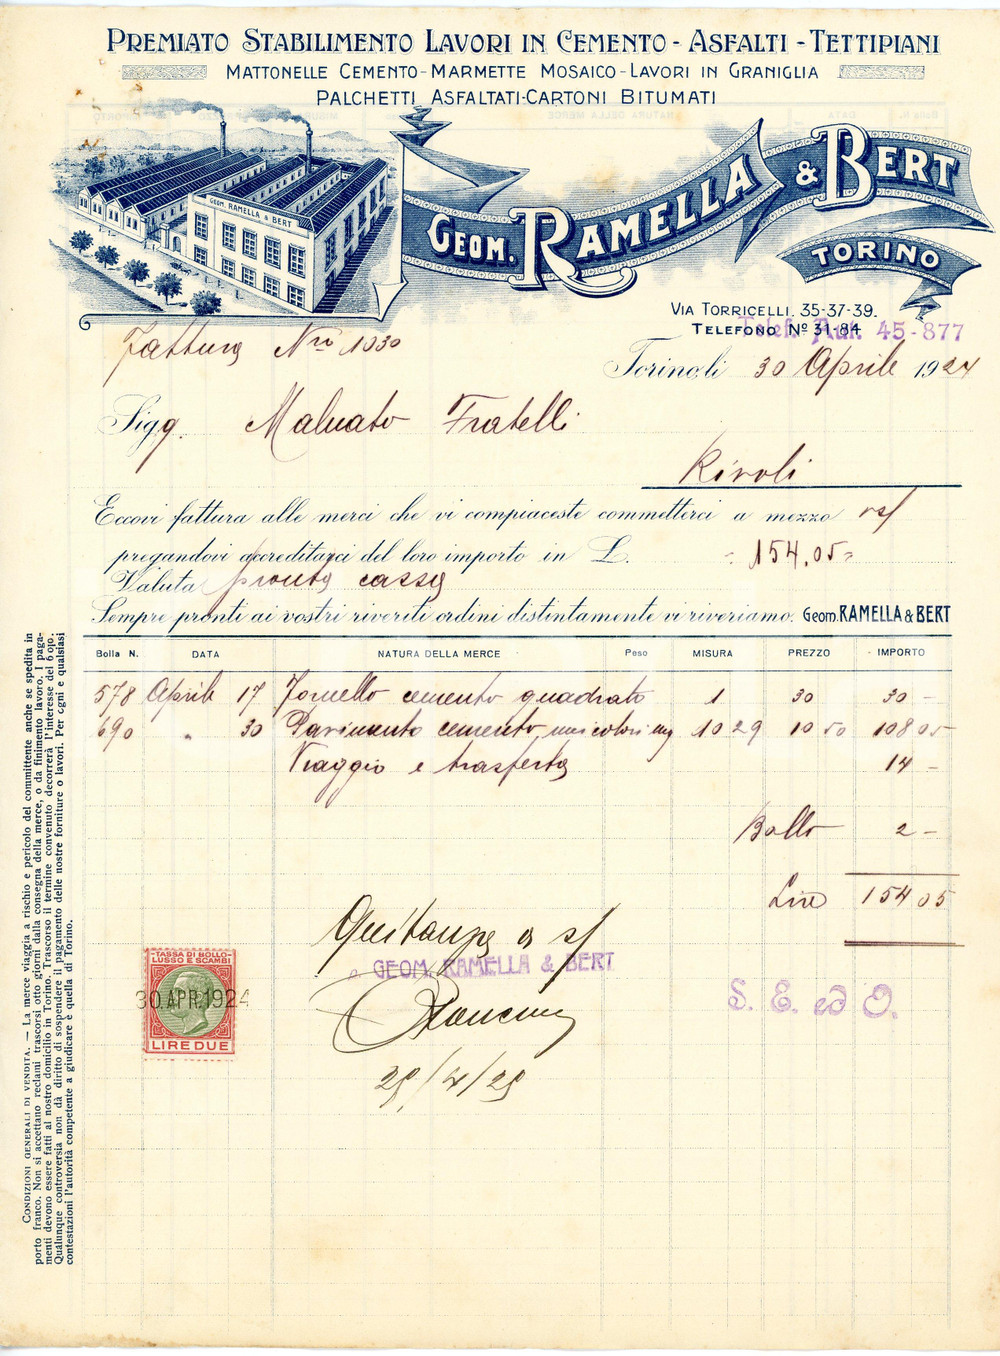 PREMIATO STABILIMENTO LAVORI IN CEMENTO - ASFALTI - TETTIPIANI
MATTONELLE CEMENTO - MARMETTE MOSAICO - LAVORI IN GRANIGLIA
PALCHETTI ASFALTATI - CARTONI BITUMATI
GEOM. RAMELLA & BERT
GEOM. RAMELLA & BERT
TORINO
VIA TORRICELLI. 35-37-39.
TELEFONO Nº 31-84
Telef. Aut. 45-877
Fattura Nro 1030
Torino, li 30 Aprile 1924
Sigg. Malvato Fratelli
Rivoli
Eccovi fattura alle merci che vi compiaceste commetterci a mezzo vs/
pregandovi accreditarci del loro importo in L. =154,05=
Valuta pronta cassa
Sempre pronti ai vostri riveriti ordini distintamente vi riveriamo. Geom. RAMELLA & BERT
Bolla N. DATA NATURA DELLA MERCE Peso MISURA PREZZO IMPORTO
578 Aprile 17 Fornello cemento quadrato 1 30 30 -
690 " 30 Pavimento cemento unicolori mq 10 29 10 50 108 05
Viaggio e trasferta 14 -
Bollo 2 -
Lire 154 05
Quitanza a s/
GEOM. RAMELLA & BERT
S. E. ed O.
TASSA DI BOLLO
LUSSO E SCAMBI
30 APR. 1924
LIRE DUE
29/4/25
CONDIZIONI GENERALI DI VENDITA. — La merce viaggia a rischio e pericolo del committente anche se spedita in
porto franco. Non si accettano reclami trascorsi otto giorni dalla consegna della merce, o da finimento lavoro. I paga-
menti devono essere fatti al nostro domicilio in Torino. Trascorso il termine convenuto decorrerà l'interesse del 6 o|o.
Qualunque controversia non dà diritto di sospendere il pagamento delle nostre forniture o lavori. Per ogni e qualsiasi
contestazioni l'autorità competente a giudicare è quella di Torino.